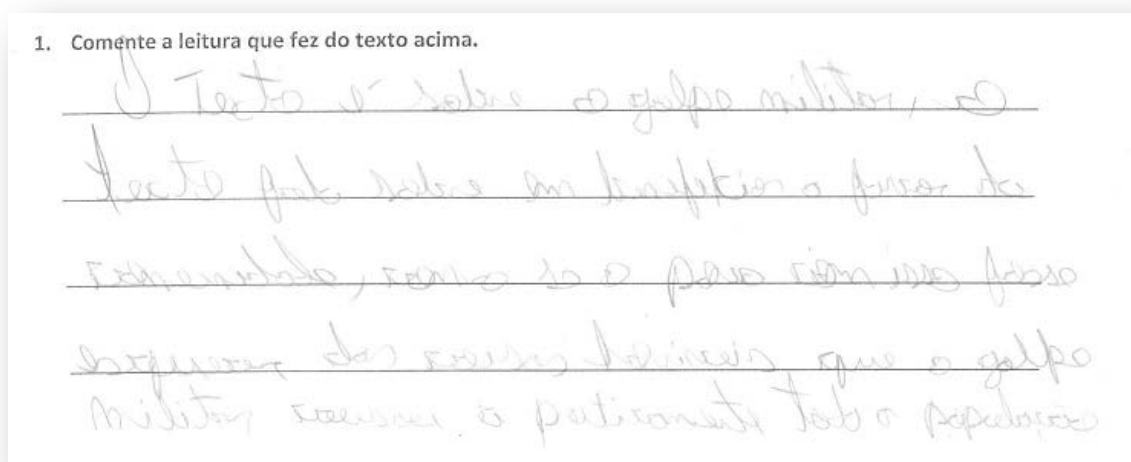 1. Comente a leitura que fez do texto acima.
O Texto é sobre o golpe militar, o
texto fal sobre em a de
como se o povo com isso fosse
esquecer das coisas horriveis que o golpe
militar causou a praticamente toda a população